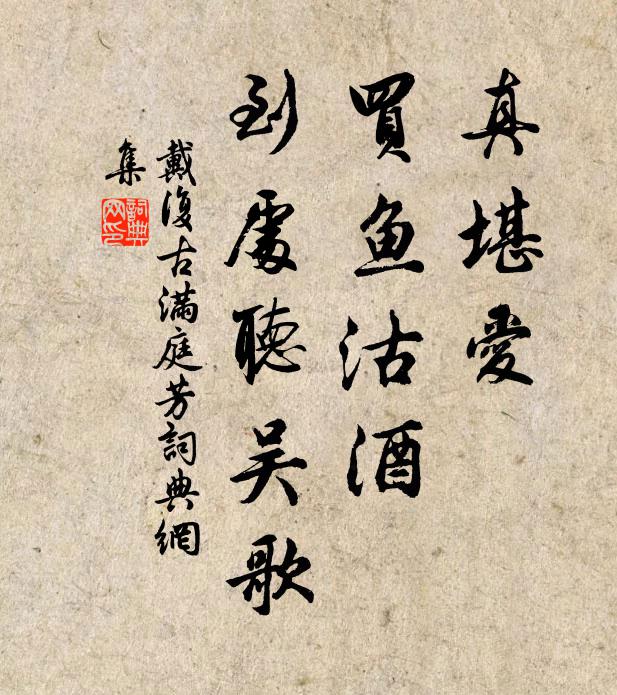 真堪愛
買魚沽酒
到處聽吴歌
戴復古滿庭芳詞典網
集
詞典
网印